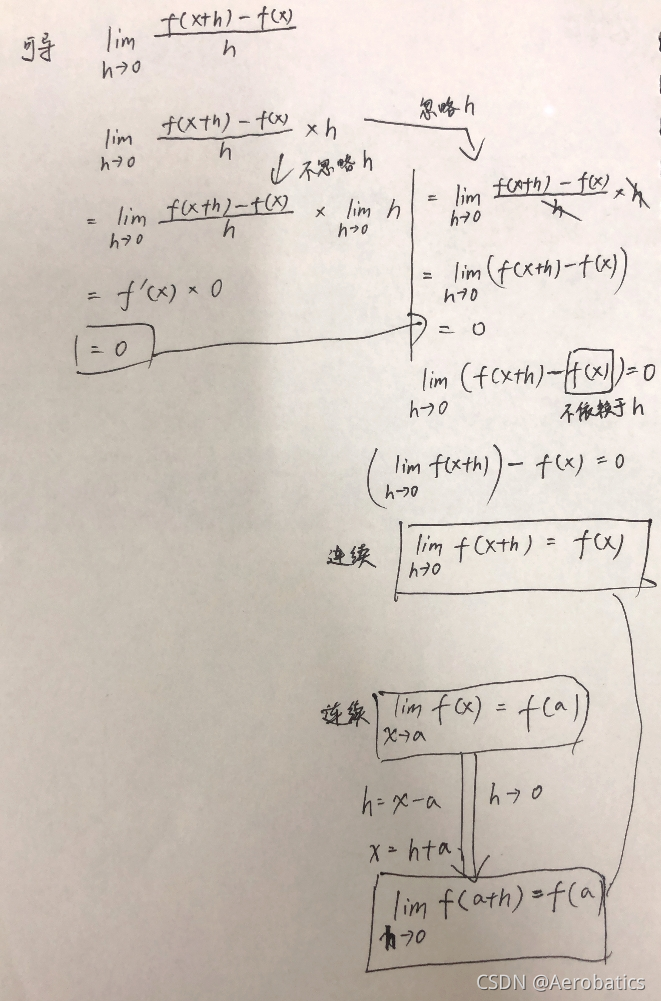 可导 lim h→0 f(x+h) - f(x) / h
lim h→0 f(x+h) - f(x) / h × h
忽略 h
不忽略 h
= lim h→0 f(x+h) - f(x) / h × lim h→0 h
= f'(x) × 0
= 0
= lim h→0 f(x+h) - f(x) / h × h
= lim h→0 (f(x+h) - f(x))
= 0
lim h→0 (f(x+h) - f(x)) = 0
于 h
(lim h→0 f(x+h)) - f(x) = 0
连续 lim h→0 f(x+h) = f(x)
连续 lim x→a f(x) = f(a)
h = x - a h→0
x = h + a
lim h→0 f(a+h) = f(a)
CSDN @Aerobatics